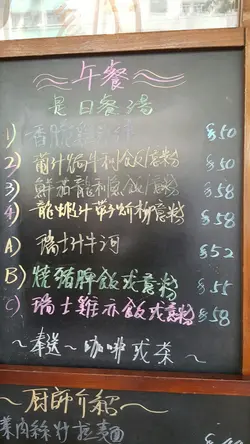 午餐
是日餐湯
1) 香 $50
2) 葡汁焗牛利飯/意粉 $50
3) 鮮茄龍利柳飯/意粉 $58
4) 龍蝦汁帶子蚧柳意粉 $58
A) 瑞士汁牛河 $52
B) 燒豬脾飯或意粉 $55
C) 瑞士雞亦飯或意粉 $58
~奉送~咖啡或茶~
~廚師介紹~
菜肉絲炒拉麵